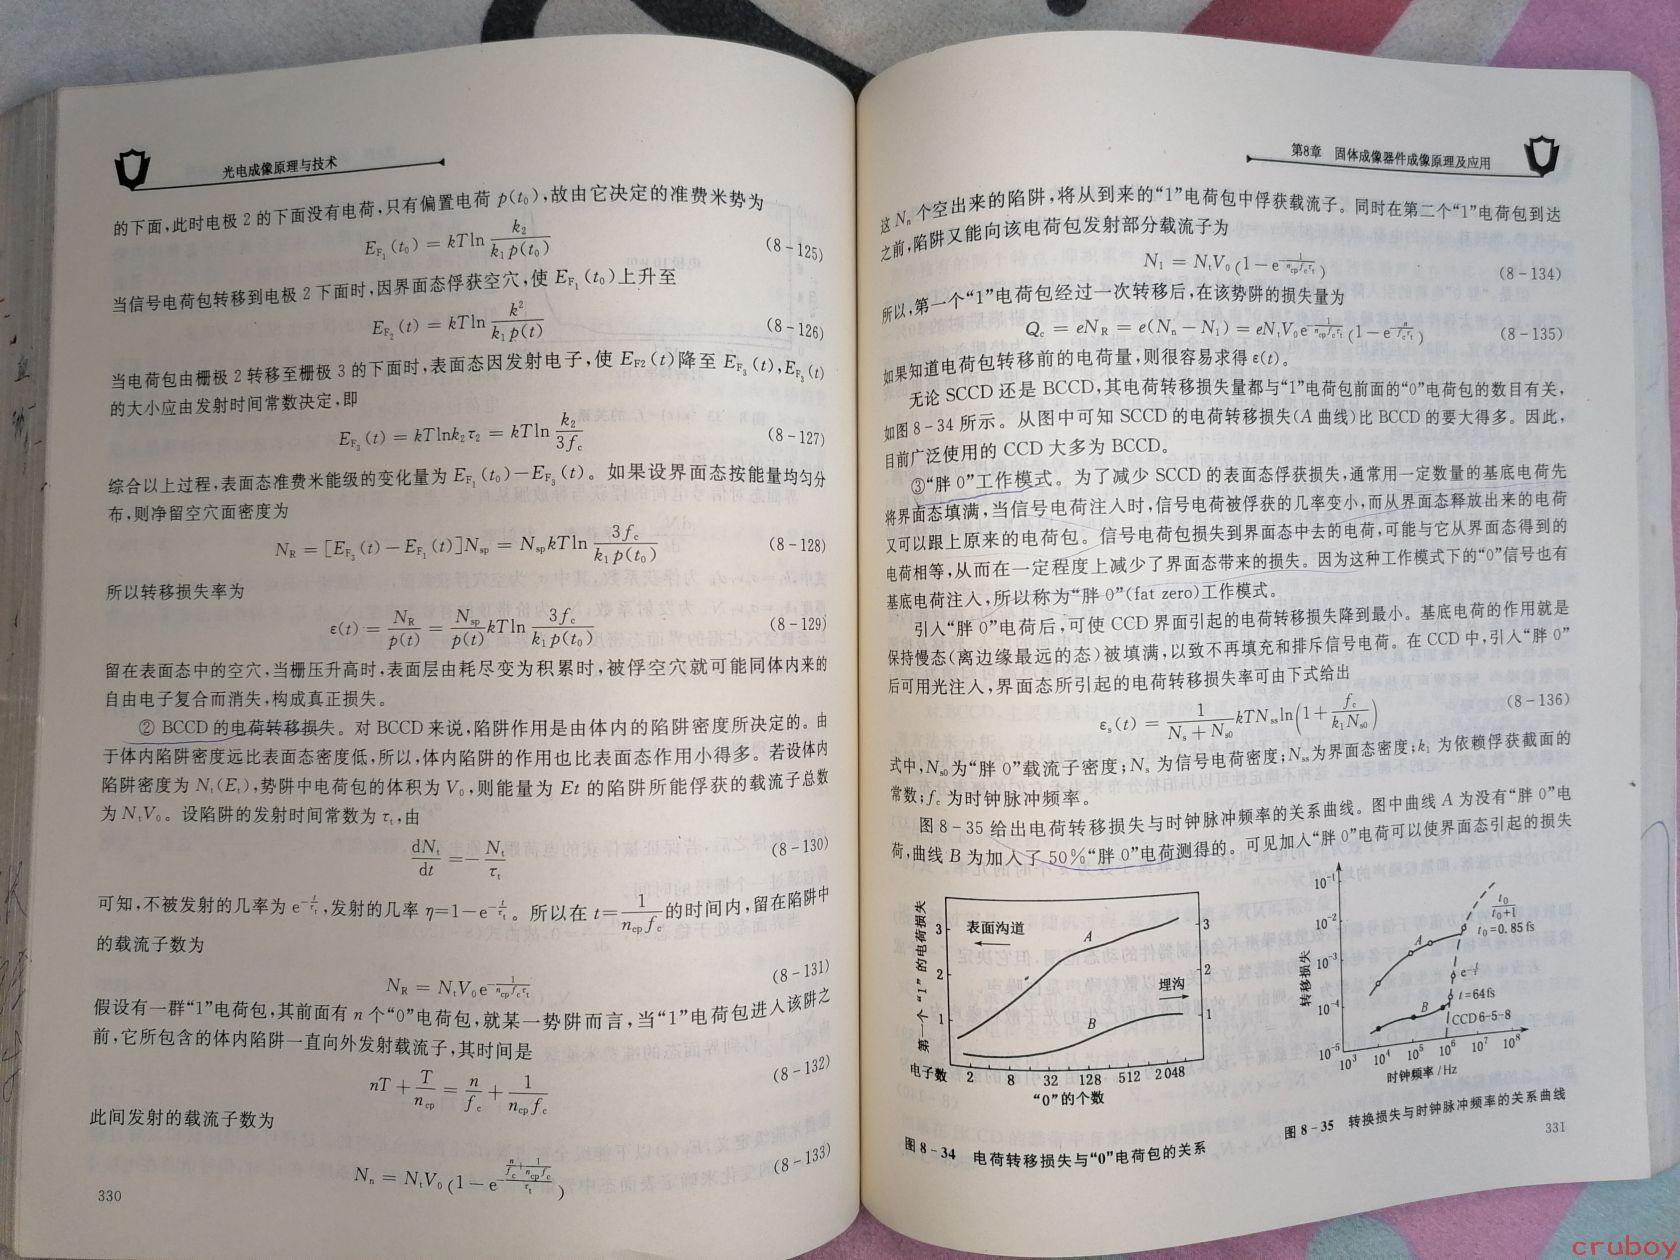 光电成像原理与技术
的下面,此时电极 2 的下面没有电荷,只有偏置电荷 p(t₀),故由它决定的准费米势为
E_F₁(t₀) = kTln k₂/(k₁p(t₀)) (8-125)
当信号电荷包转移到电极 2 下面时,因界面态俘获空穴,使 E_F₁(t₀)上升至
E_F₂(t) = kTln k²/(k₁p(t)) (8-126)
当电荷包由栅极 2 转移至栅极 3 的下面时,表面态因发射电子,使 E_F2(t)降至 E_F₃(t),E_F₃(t)
的大小应由发射时间常数决定,即
E_F₃(t) = kTlnk₂τ₂ = kTln k₂/(3f_c) (8-127)
综合以上过程,表面态准费米能级的变化量为 E_F₁(t₀)－E_F₃(t)。如果设界面态按能量均匀分
布,则净留空穴面密度为
N_R = [E_F₃(t)－E_F₁(t)]N_sp = N_sp kTln 3f_c/(k₁p(t₀)) (8-128)
所以转移损失率为
ε(t) = N_R/p(t) = N_sp/p(t) kTln 3f_c/(k₁p(t₀)) (8-129)
留在表面态中的空穴,当栅压升高时,表面层由耗尽变为积累时,被俘空穴就可能同体内来的
自由电子复合而消失,构成真正损失。
② BCCD 的电荷转移损失。对 BCCD 来说,陷阱作用是由体内的陷阱密度所决定的。由
于体内陷阱密度远比表面态密度低,所以,体内陷阱的作用也比表面态作用小得多。若设体内
陷阱密度为 N_t(E_t),势阱中电荷包的体积为 V₀,则能量为 Et 的陷阱所能俘获的载流子总数
为 N_tV₀。设陷阱的发射时间常数为 τ_t,由
dN_t/dt = － N_t/τ_t (8-130)
可知,不被发射的几率为 e^(-t/τ_t),发射的几率 η=1－e^(-t/τ_t)。所以在 t= 1/(n_cp f_c) 的时间内,留在陷阱中
的载流子数为
N_R = N_tV₀e^(-1/(n_cp f_c τ_t)) (8-131)
假设有一群“1”电荷包,其前面有 n 个“0”电荷包,就某一势阱而言,当“1”电荷包进入该阱之
前,它所包含的体内陷阱一直向外发射载流子,其时间是
nT + T/n_cp = n/f_c + 1/(n_cp f_c) (8-132)
此间发射的载流子数为
N_n = N_tV₀(1－e^(-(n/f_c + 1/(n_cp f_c))/τ_t)) (8-133)
330
第8章 固体成像器件成像原理及应用
这 N_n 个空出来的陷阱,将从到来的“1”电荷包中俘获载流子。同时在第二个“1”电荷包到达
之前,陷阱又能向该电荷包发射部分载流子为
N₁ = N_tV₀(1－e^(-1/(n_cp f_c τ_t))) (8-134)
所以,第一个“1”电荷包经过一次转移后,在该势阱的损失量为
Q_c = eN_R = e(N_n－N₁) = eN_tV₀e^(-1/(n_cp f_c τ_t))(1－e^(-n/(f_c τ_t))) (8-135)
如果知道电荷包转移前的电荷量,则很容易求得 ε(t)。
无论 SCCD 还是 BCCD,其电荷转移损失量都与“1”电荷包前面的“0”电荷包的数目有关,
如图 8-34 所示。从图中可知 SCCD 的电荷转移损失(A 曲线)比 BCCD 的要大得多。因此,
目前广泛使用的 CCD 大多为 BCCD。
③“胖 0”工作模式。为了减少 SCCD 的表面态俘获损失,通常用一定数量的基底电荷先
将界面态填满,当信号电荷注入时,信号电荷被俘获的几率变小,而从界面态释放出来的电荷
又可以跟上原来的电荷包。信号电荷包损失到界面态中去的电荷,可能与它从界面态得到的
电荷相等,从而在一定程度上减少了界面态带来的损失。因为这种工作模式下的“0”信号也有
基底电荷注入,所以称为“胖 0”(fat zero)工作模式。
引入“胖 0”电荷后,可使 CCD 界面引起的电荷转移损失降到最小。基底电荷的作用就是
保持慢态(离边缘最远的态)被填满,以致不再填充和排斥信号电荷。在 CCD 中,引入“胖 0”
后可用光注入,界面态所引起的电荷转移损失率可由下式给出
ε_s(t) = 1/(N_s + N_s0) kTN_ss ln(1 + f_c/(k₁N_s0)) (8-136)
式中,N_s0为“胖 0”载流子密度;N_s 为信号电荷密度;N_ss为界面态密度;k₁ 为依赖俘获截面的
常数;f_c 为时钟脉冲频率。
图 8-35 给出电荷转移损失与时钟脉冲频率的关系曲线。图中曲线 A 为没有“胖 0”电
荷,曲线 B 为加入了 50%“胖 0”电荷测得的。可见加入“胖 0”电荷可以使界面态引起的损失
第一个“1”的电荷损失
3
2
1
表面沟道
A
埋沟
B
3
2
1
电子数 2 8 32 128 512 2 048
“0”的个数
图 8-34 电荷转移损失与“0”电荷包的关系
转移损失
10⁻¹
10⁻²
10⁻³
10⁻⁴
10⁻⁵
t₀/(t₀+1)
t₀=0.85 fs
A
t=64fs
B
CCD6-5-8
10³ 10⁴ 10⁵ 10⁶ 10⁷ 10⁸
时钟频率/Hz
图 8-35 转换损失与时钟脉冲频率的关系曲线
331
cruboy